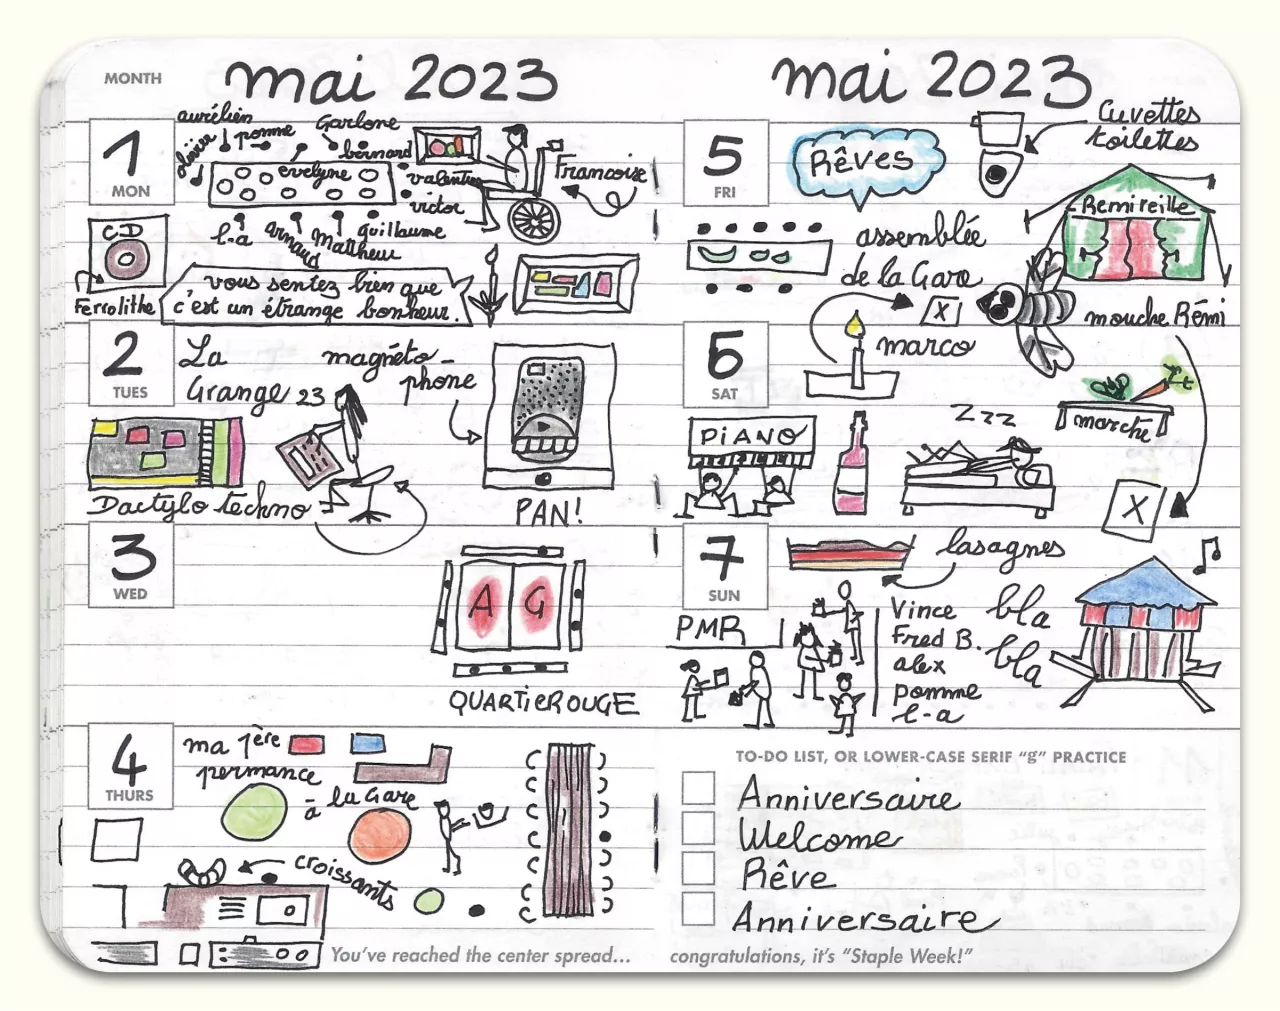 MONTH
mai 2023
1
MON
aurélien
olivier
pomme
Garlone
bernard
evelyne
valentin
victor
Francoise
l-a
arnaud
Mattheur
guillaume
CD
Ferrolithe
vous sentez bien que
c'est un étrange bonheur.
2
TUES
La
Grange 23
magnéto-
phone
Dactylo techno
PAN!
3
WED
A G
QUARTIEROUGE
4
THURS
ma 1ère
permance
à la Gare
croissants
You've reached the center spread...
mai 2023
5
FRI
Rêves
Cuvettes
toilettes
Remireille
assemblée
de la Gare
X
mouche Rémi
6
SAT
marco
marché
PIANO
Zzz
X
7
SUN
lasagnes
PMR
Vince
Fred B.
alex
pomme
l-a
bla
bla
TO-DO LIST, OR LOWER-CASE SERIF "g" PRACTICE
Anniversaire
Welcome
Rêve
Anniversaire
congratulations, it's "Staple Week!"